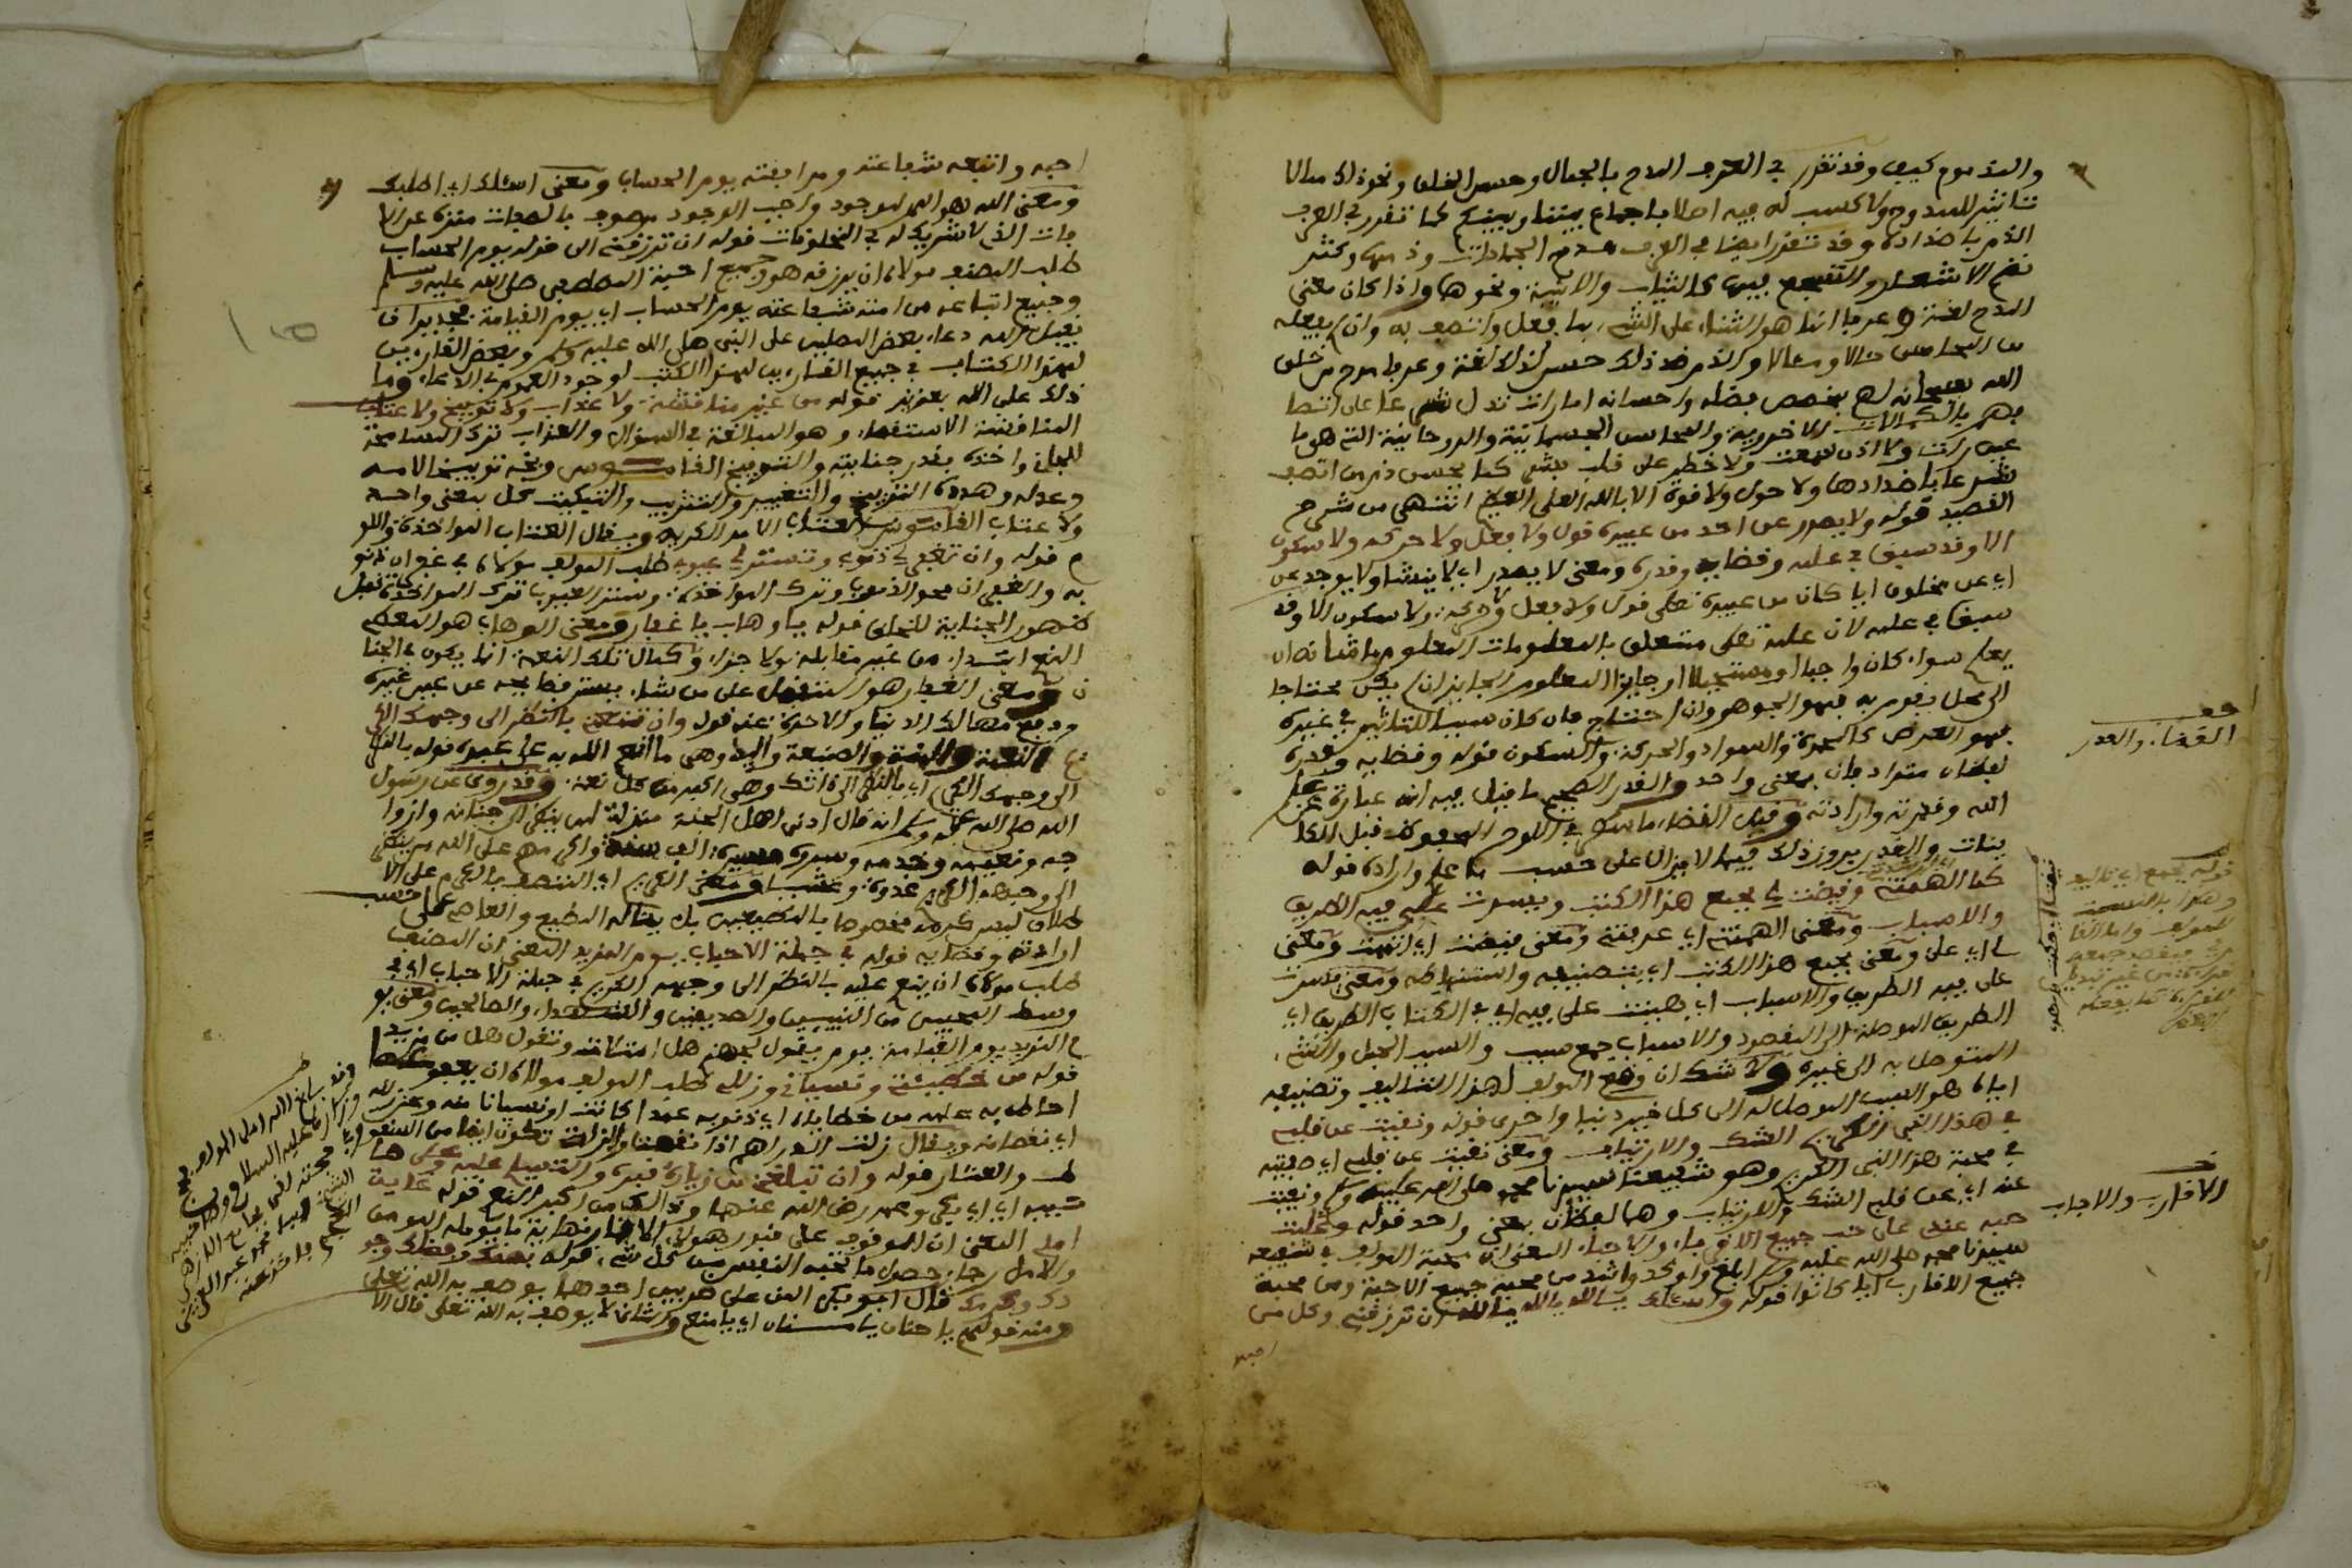 والمذموم كيف وقد تقرر في العرف المدح بالجمال وحسن الخلق ونحوذلك مما لا
تاثير للممدوح ولا كسب له فيه اصلا باجماع بيننا وبينكم كما تقرر في العرف
الذم باضداده وقد تقرر ايضا في العرف مدح الجمادات وذمها وكثر
نظم الاشعار والتسجيع فيها كالثياب والابنية ونحوها واذا كان معنى
المدح لغة وعرفا انما هو الثناء على الشيء بما فعل واتصف به وان لم يفعله
من المحاسن حالا ومآلا والذم ضد ذلك حسن لذلك لغة وعرفا مدح من خلق
الله سبحانه لهم بمحض فضله واحسانه امارات تدل شرعا على اتصا
فهم بالكمالات الاخروية والمحاسن الجسمانية والروحانية التي هي ما
عين رات ولا اذن سمعت ولا خطر على قلب بشر كما يحسن ذم من اتصف
شرعا باضدادها ولا حول ولا قوة الا بالله العلي العظيم انتهى من شرح
القصيد قوله ولا يصدر عن احد من عبيده قول ولا فعل ولا حركة ولا سكون
الا وقد سبق في علمه وقضائه وقدره ومعنى لا يصدر اي لا ينشا ولا يوجد عن
اي عن مخلوق ايا كان من عبيده تعلى قول ولا فعل ولا حركة ولا سكون الا وقد
سبق في علمه لان علمه تعلى متعلق بالمعلومات المعلوم ما شانه ان
يعلم سواء كان واجبا او مستحيلا او جايزا المعلوم الجايز ان لم يكن محتاجا
الى محل يقوم به فهو الجوهر وان احتاج فان كان سببا للتاثير في غيره
فهو العرض كالحمرة والسواد والحركة والسكون قوله وقضايه وقدره
لفظان مترادفان بمعنى واحد والقدر الصحيح ما قيل فيه انه عبارة عن علم
الله وقدرته وارادته وقيل القضاء ما سبق في اللوح المحفوظ قبل الكا
ينات والقدر بروز ذلك فيما لا يزال على حسب ما علم واراده قوله
كما الهمتني وقضيت لي بجمع هذا الكتب ويسرت علي فيه الطريق
والاسباب ومعنى الهمتني اي عرفتني ومعنى قضيت اي اتممت ومعنى
لي اي على ومعنى بجمع هذا الكتب اي بتصنيفه واستنباطه ومعنى يسرت
على فيه الطريق والاسباب اي هينت على فيه اي في الكتاب الطريق اي
الطريق الموصلة الى المقصود والاسباب جمع سبب والسبب الحبل والشيء
المتوصل به الى غيره ولا شك ان وضع المولف لهذا التاليف وتصنيفه
اياه هو السبب الموصل له الى كل خير دنيا واخرى قوله ونفيت عن قلبي
في هذا النبي الكريم الشك والارتياب ومعنى نفيت عن قلبي اي صفيته
في محبة هذا النبي الكريم وهو شفيعنا سيدنا محمد صلى الله عليه وسلم ونفيت
عنه اي عن قلبي الشك والارتياب وهما لفظان بمعنى واحد قوله وغلبت
حبه عندي على حب جميع الاقرباء والاحباء المعنى ان محبة المولف في شفيعه
سيدنا محمد صلى الله عليه وسلم ابلغ واوكد واشد من محبة جميع الاحبة ومن محبة
جميع الاقارب ايا كانوا قوله واسئلك يا الله يا الله يا الله ان ترزقني وكل من
احبه
قف
القضاء والقدر
الاقارب والاحباب
احبه واتبعه شفاعته ومرافقته يوم الحساب ومعنى اسئلك اي اطلبك
ومعنى الله هو اسم لموجود واجب الوجود موصوف بالصفات منزه عن الا
فات الذي لا شريك له في المخلوقات قوله ان ترزقني الى قوله يوم الحساب
طلب المصنف مولاه ان يرزقه هو وجميع احبة المصطفى صلى الله عليه وسلم
وجميع اتباعه من امته شفاعته يوم الحساب اي يوم القيامة فجدير ان
يقبل الله دعاء بعض المصلين على النبي صلى الله عليه وسلم وبعض القارءين
لهذا الكتاب في جميع القارءين لهذا الكتب لوجود العموم في الدعاء وما
ذلك على الله بعزيز قوله من غير مناقشة ولا عذاب ولا توبيخ ولا عتاب
المناقشة الاستقصاء وهو المبالغة في السؤال والعذاب ترك المسامحة
للجاني واخذه بقدر جنايته والتوبيخ القاموس وبخه توبيخا لامه
وعذله وهدده التوبيخ والتغيير والتثريب والتبكيت كل بمعنى واحد
ولا عتاب القاموس العتاب الامر الكريه ويقال العتاب المواخذة واللو
م قوله وان تغفر لي ذنوبي وتستر لي عيوبي طلب المولف مولاه في غفران ذنو
به والغفران محو الذنوب وترك المواخذة وستر العيوب ترك المواخذة قبل
ظهور الجناية للخلق قوله يا وهاب يا غفار ومعنى الوهاب هو المعطي
النعم ابتداء من غير مقابلة ولا جزاء وكمال تلك النعمة انما يكون في الجنا
ن ومعنى الغفار هو المتفضل على من شاء بستر قبايحه عن عيب غيره
ودفع مهالك الدنيا والاخرة عنه قوله وان تنعمني بالنظر الى وجهك الكر
يم النعمة والمنة والصنيعة واليد وهي ما انعم الله به على عبده قوله بالنظر
الى وجهك الكريم اي بالنظر الى ذاتك وهي اكبر من كل نعمة وقد روى عن رسول
الله صلى الله عليه وسلم انه قال ادنى اهل الجنة منزلة لمن ينظر الى جنانه وازوا
جه ونعيمه وخدمه وسرره مسيرة الف سنة واكرمهم على الله من ينظر
الى وجهه الكريم غدوة وعشيا ومعنى الكريم اي المتصف بالكرم على الا
طلاق ليس كرمه مخصوصا بالمطيعين بل يناله المطيع والعاصي على حسب
ارادته وقضايه قوله في جملة الاحباب يوم المزيد المعنى ان المصنف
طلب مولاه ان ينعم عليه بالنظر الى وجهه الكريم في جملة الاحباب اي في
وسط المحبين من النبيين والصديقين والشهداء والصالحين ومعنى يو
م المزيد يوم القيامة يوم يقول لجهنم هل امتلات وتقول هل من مزيد
قوله من خطيئتي ونسياني وزللي طلب المولف مولاه ان يعفو عما
احاط به علمه من خطاياه اي ذنوبه عمدا كانت او نسيانا منه وعن زلله
اي نقصانه ويقال زلت الدراهم اذا نقصت والزلة تكون ايضا من السقو
ط والعثار قوله وان تبلغني من زيارة قبره والتسليم عليه وعلى صا
حبيه اي ابي بكر وعمر رضي الله عنهما وذلك من اكبر النعم قوله غاية
املي المعنى ان الوقوف على قبور هولاء الاخيار نهاية ما يومله المومن
والامل رجاء حصول ما تحبه النفس من كل شيء قوله بمنك وفضلك وجو
دك وكرمك قال ابو بكر المن على ضربين احدهما يوصف به الله تعلى
ومنه قولهم يا حنان يا منان اي يا منعم والثاني لا يوصف به الله تعلى قال الا